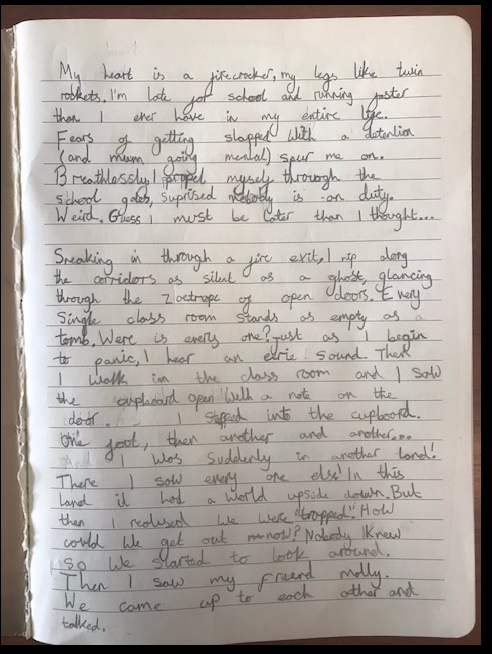 My heart is a firecracker, my legs like twin
rockets. I'm late for school and running faster
than I ever have in my entire life.
Fears of getting slapped with a detention
(and mum going mental) spur me on.
Breathlessly I propel myself through the
school gates, suprised nobody is on duty.
Weird. Guess I must be later than I thought...
Sneaking in through a fire exit, I nip along
the corridors as silent as a ghost, glancing
through the zoetrope of open doors. Every
single class room stands as empty as a
tomb. Were is every one? Just as I begin
to panic, I hear an eerie sound. Then
I walk in the class room and I saw
the cupboard open with a note on the
door. I stepped into the cupboard.
One foot, then another and another...
I was suddenly in another land!
There I saw every one else! In this
land it had a world upside down. But
then I realused we were "trapped". How
could we get out now? Nobody knew
so we started to look around.
Then I saw my friend molly.
We came up to each other and
talked.